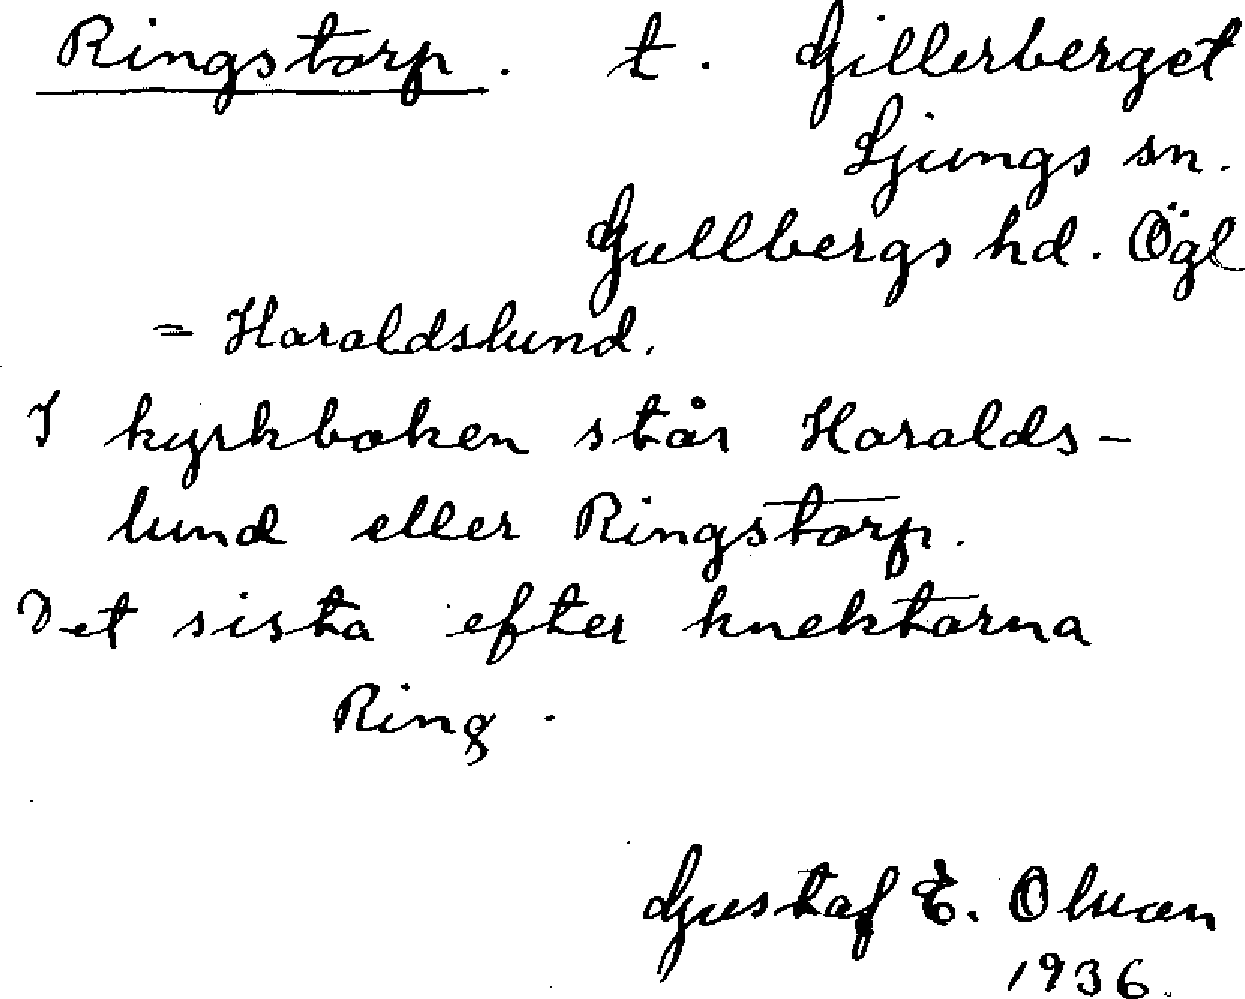 Ringstorp. t. Gillerberget
Ljungs sn.
Gullbergs hd. Ögl
= Haraldslund.
I kyrkboken står Haralds-
lund eller Ringstorp.
Det sista efter knektarna
Ring.
Gustaf E.
1936.